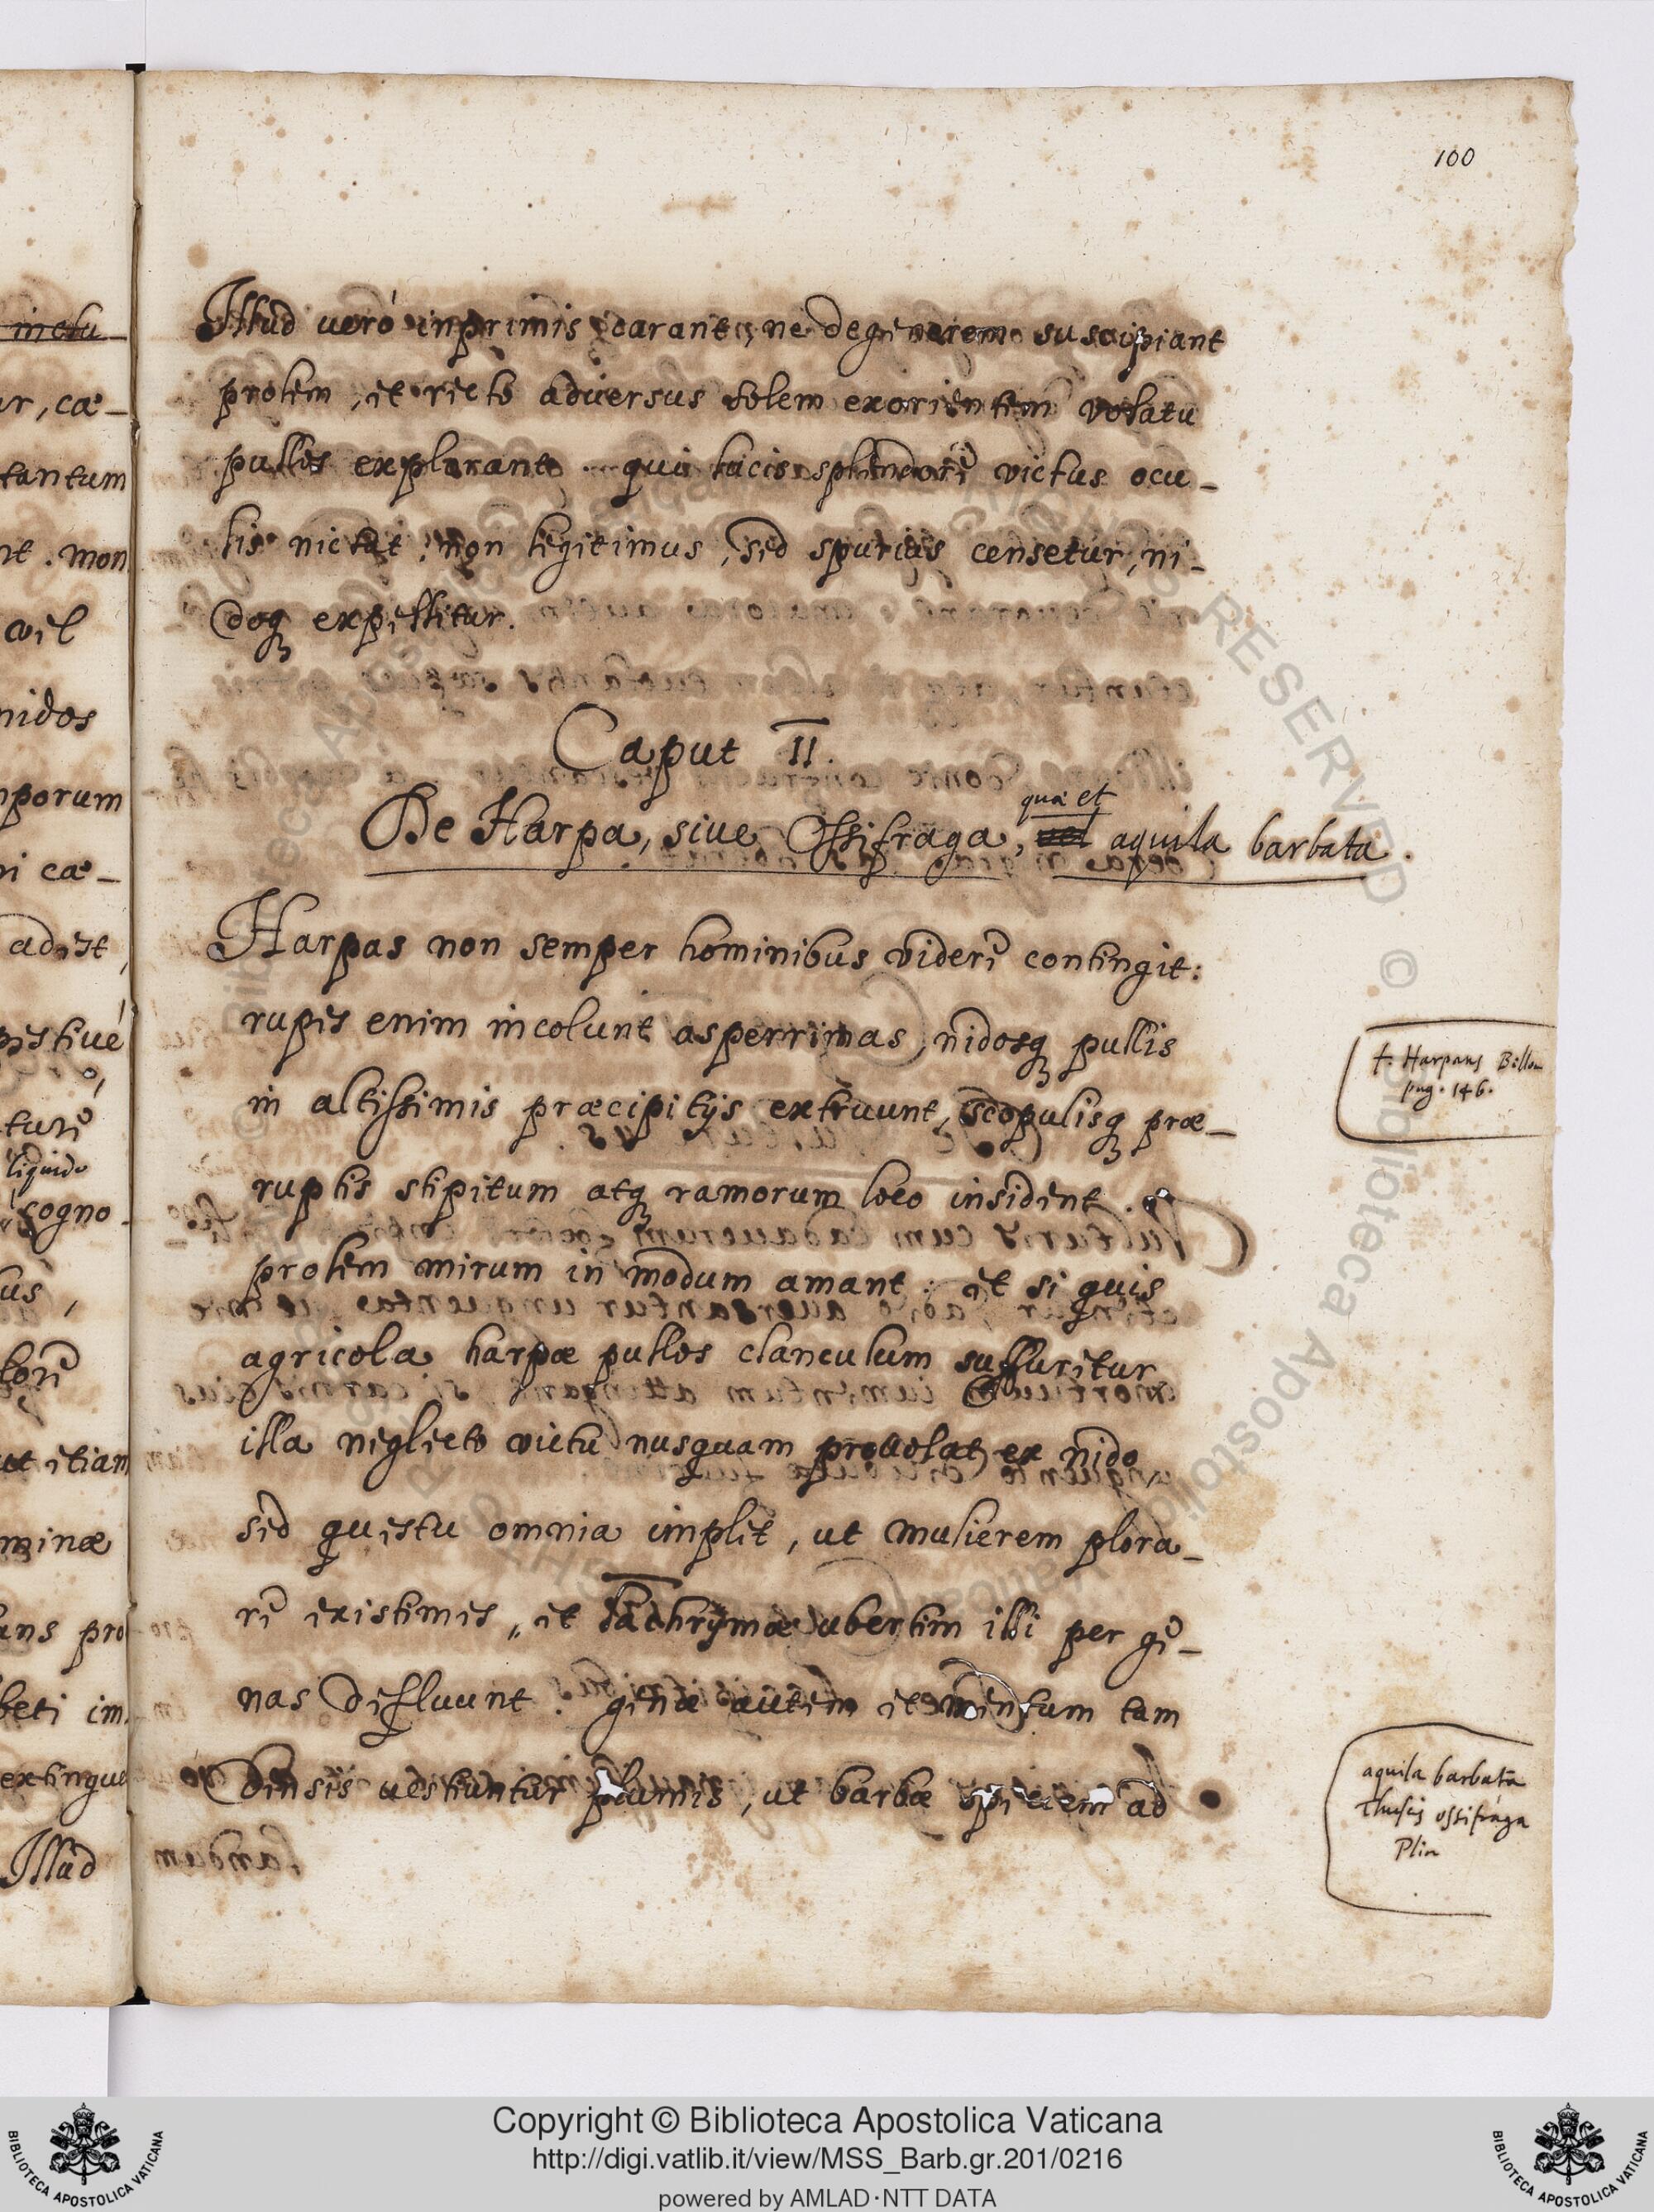 100
Illud uerò inprimis curant, ne degenerem suscipiant
prolem, et recto adversus solem exorientem volatu
pullos explorant. qui lucis splendore victus ocu-
lis nictat, non legitimus, sed spurius censetur, ni-
doq expellitur.
Caput II.
quæ et
De Harpa, siue Ossifraga, uel aquila barbata.
Harpas non semper hominibus videri contingit:
rupes enim incolunt asperrimas, nidosq pullis
in altissimis præcipitijs extruunt, scopulisq præ-
ruptis stipitum atq ramorum loco insident.
prolem mirum in modum amant: et si quis
agricola harpæ pullos clanculum suffuretur
illa neglecto victu nusquam prouolat ex nido,
sed questu omnia implet, ut mulierem plora-
re existimes, et lachrymæ ubertim illi per ge-
nas defluunt. genæ autem et mentum tam
densis uestiuntur plumis, ut barbæ speciem ad
t. Harpans Bellon
pag. 146.
aquila barbata
Thuscis ossifraga
Plin
inctu-
ur, cæ-
tantum
nt. mon
vel
nidos
mporum
ni cæ-
adest,
liquido
cogno-
us,
lore
ut etiam
minæ
ans pro
beti im-
extingue
Illud
Copyright © Biblioteca Apostolica Vaticana
http://digi.vatlib.it/view/MSS_Barb.gr.201/0216
powered by AMLAD·NTT DATA
BIBLIOTECA APOSTOLICA VATICANA
BIBLIOTECA APOSTOLICA VATICANA